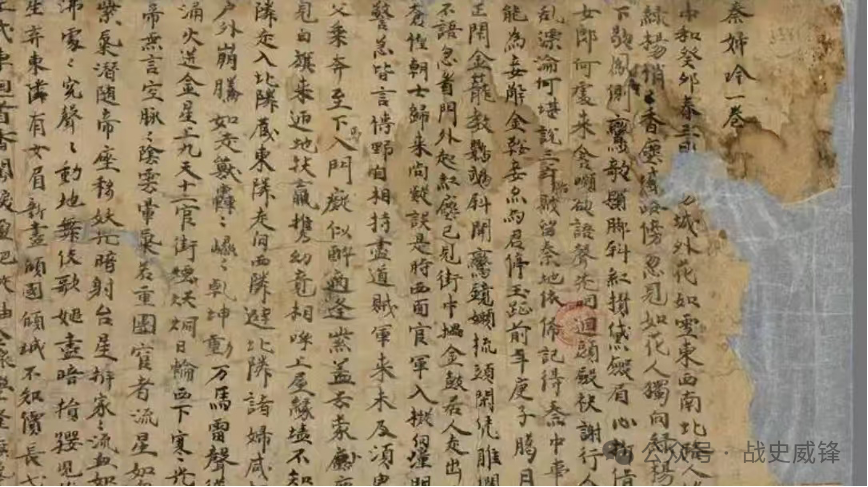 秦婦吟一卷
中和癸卯春三月城外花如雪東西南北路人
綠楊悄〻香塵滅路傍忽見如花人獨向綠楊
下歇鳳側鸞欹鬢脚斜紅攢黛斂眉心折借
女郎何處來含嚬欲語聲先咽迴頭斂袂謝行人
亂漂淪何堪說三年陷賊留秦地依俙記得秦中事
能為妾解金鞍妾亦為君停玉趾前年庚子臘月
正閉金籠教鸚鵡斜開鸞鏡懶梳頭閑凭雕欄
不語忽看門外起紅塵已見街中擂金鼓居人走出
蒼惶朝士歸來尚疑誤是時西面官軍入擬向潼關
警急皆言博野自相持盡道賊軍來未及須臾
父乘奔至下入門癡似醉適逢紫蓋去蒙塵
見白旗來迊地扶羸携幼竟相呼上屋緣墻不知
隣走入北隣藏東隣走向西隣避北隣諸婦咸
戶外崩騰如走獸轟〻乾坤動万馬雷聲從
涌火迸金星上九天十二官街煙烘烔日輪西下寒光
帝無言空脉〻陰雲暈氣若重圍宦者流星如
紫氣潛隨帝座移妖光暗射台星拆家〻流血如
沸處〻冤聲〻動地舞伎歌姬盡暗捐嬰兒
生弃東隣有女眉新畫傾國傾城不知價長戈
戎車迴首香閨淚盈把
公众号 · 战史威锋